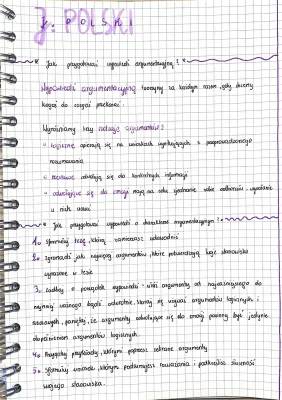 J. POLSKI
Jak przygotować wypowiedź argumentacyjną?
Wypowiedź argumentacyjną tworzymy za każdym razem, gdy chcemy
kogoś do czegoś przekonać.
Wyróżniamy trzy rodzaje argumentów:
logiczne opierają się na wnioskach wynikających z przeprowadzonego
rozumowania
rzeczowe odwołują się do konkretnych informacji
odwołujące się do emocji mają na celu zjednanie sobie odbiorców, wywołanie
u nich uczuć
Jak przygotować wypowiedź o charakterze argumentacyjnym?
1. Sformułuj tezę, którą zamierzasz udowodnić
2. Zgromadź jak najwięcej argumentów, które potwierdzają twoje stanowisko
wyrażone w tezie
3. Zadbaj o porządek wypowiedzi - ułóż argumenty od najważniejszego do
najmniej ważnego bądź odwrotnie, staraj się używać argumentów logicznych i
rzeczowych, pamiętaj, że argumenty odwołujące się do emocji powinny być jedynie
dopełnieniem argumentów logicznych.
4. Przygotuj przykłady, którymi poprzesz zebrane argumenty
5. Sformułuj wniosek, którym podsumujesz rozważania i podkreślisz słuszność
swojego stanowiska.